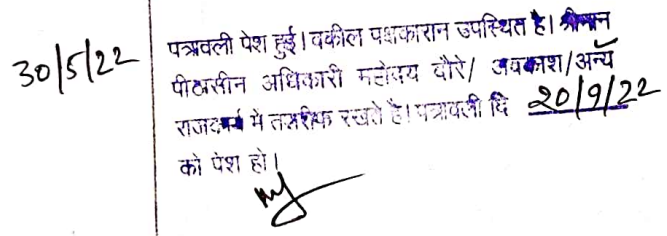 30/5/22
पत्रावली पेश हुई। वकील पक्षकारान उपस्थित है। श्रीमान
पीठासीन अधिकारी महोदय दौरे/ अवकाश/अन्य
राजकार्य में तशरीफ रखते है। पत्रावली दि 20/9/22
को पेश हो।